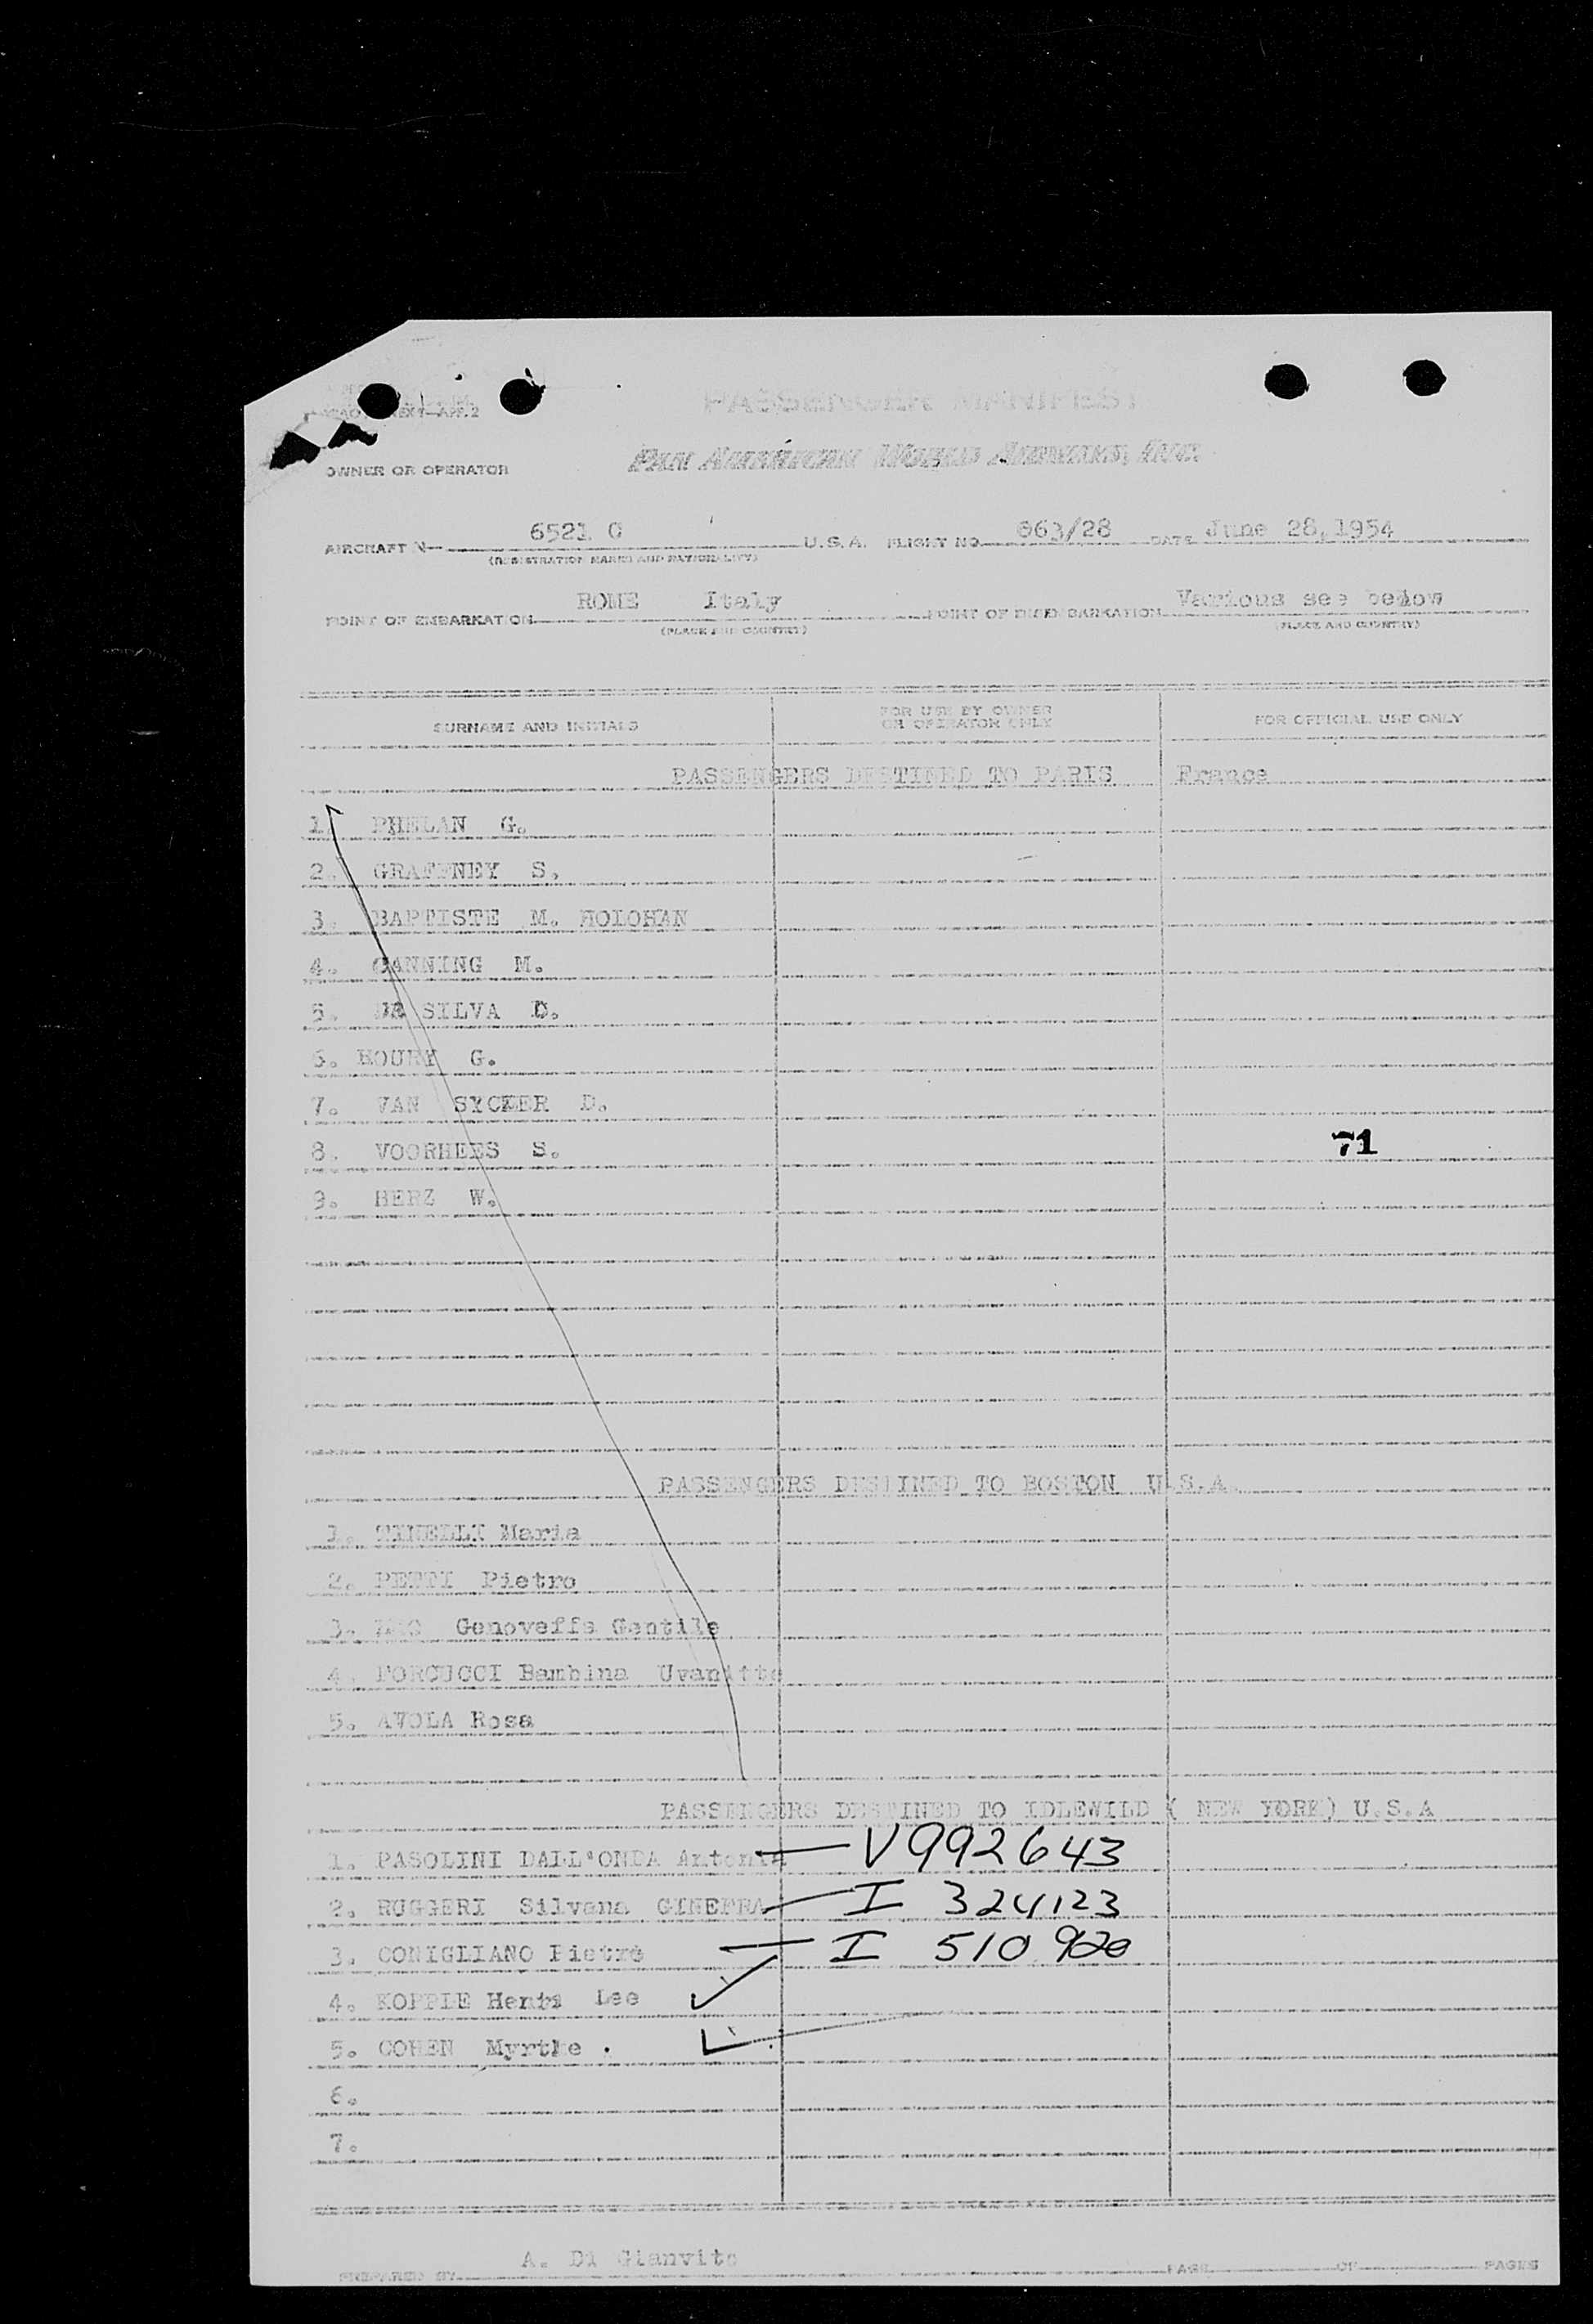 PASSENGER MANIFEST
OWNER OR OPERATOR PAN AMERICAN WORLD AIRWAYS, INC.
AIRCRAFT N 6521 C U.S.A. FLIGHT NO. 063/28 DATE June 28, 1954
(REGISTRATION MARKS AND NATIONALITY)
POINT OF EMBARKATION ROME Italy POINT OF DISEMBARKATION Various see below
(PLACE AND COUNTRY) (PLACE AND COUNTRY)
SURNAME AND INITIALS FOR USE BY OWNER OR OPERATOR ONLY FOR OFFICIAL USE ONLY
PASSENGERS DESTINED TO PARIS France
1. PHELAN G.
2. GRAFFNEY S.
3. BAPTISTE M. HOLOHAN
4. CANNING M.
5. DE SILVA D.
6. HOURY G.
7. VAN SYCKER D.
8. VOORHEES S. 71
9. HERZ W.
PASSENGERS DESTINED TO BOSTON U.S.A.
1. TINELLI Maria
2. PETTI Pietro
3. Genoveffa Gentile
4. PORCUCCI Bambina
5. AVOLA Rosa
PASSENGERS DESTINED TO IDLEWILD ( NEW YORK) U.S.A
1. PASOLINI DALL'ONDA Antonia — V992643
2. RUGGERI Silvana GINEFRA — I 324123
3. CONIGLIANO Pietro — I 510 920
4. KOPPLE Lee
5. COHEN Myrtle .
6.
7.
PREPARED BY A. Di Gianvito PAGE OF PAGES